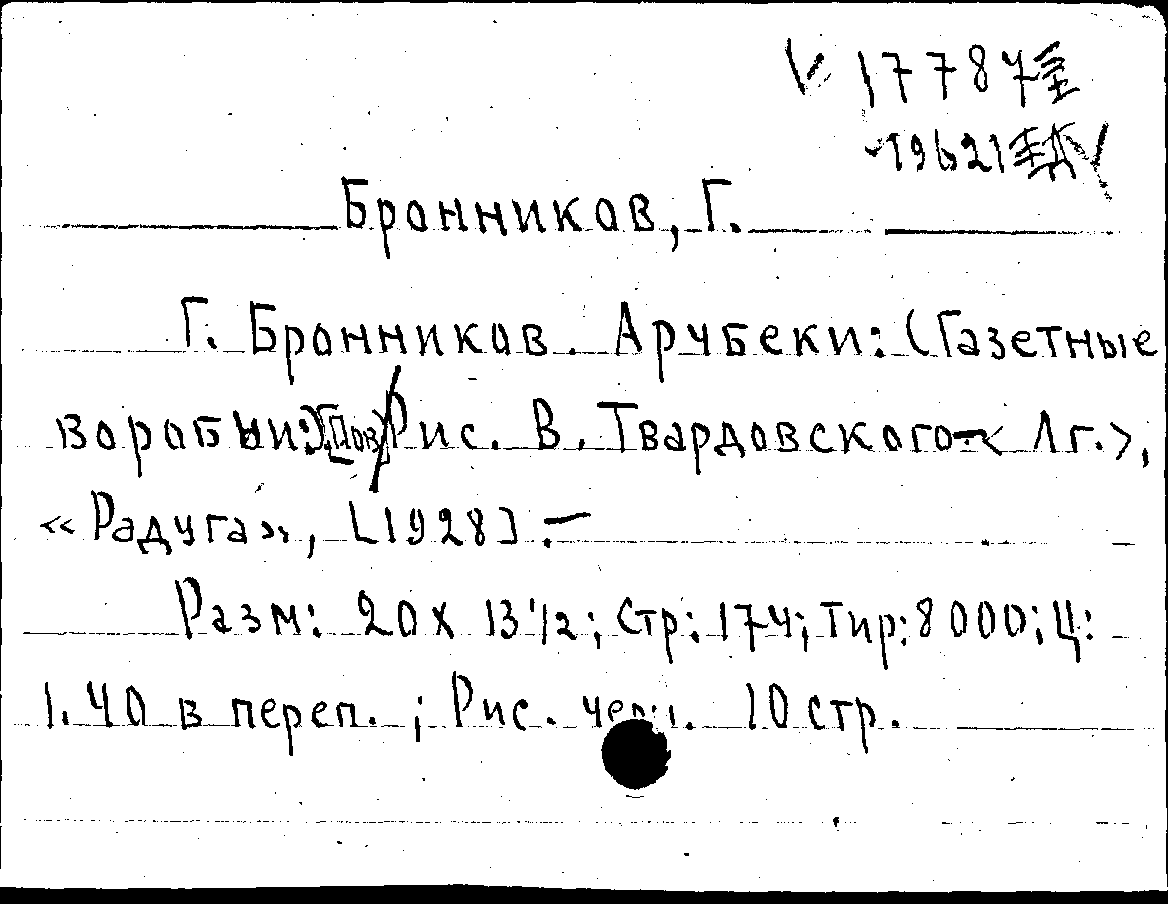 17787
19621
Бронников, Г.
Г. Бронников. Арубеки: (Газетные
воробьи:) [Пов] Рис. В. Твардовского. - < Лг.>,
«Радуга», [1928]. -
Разм: 20 х 13 1/2; Стр: 174; Тир: 8000; Ц:
1.40 в переп.; Рис. черн. 10 стр.